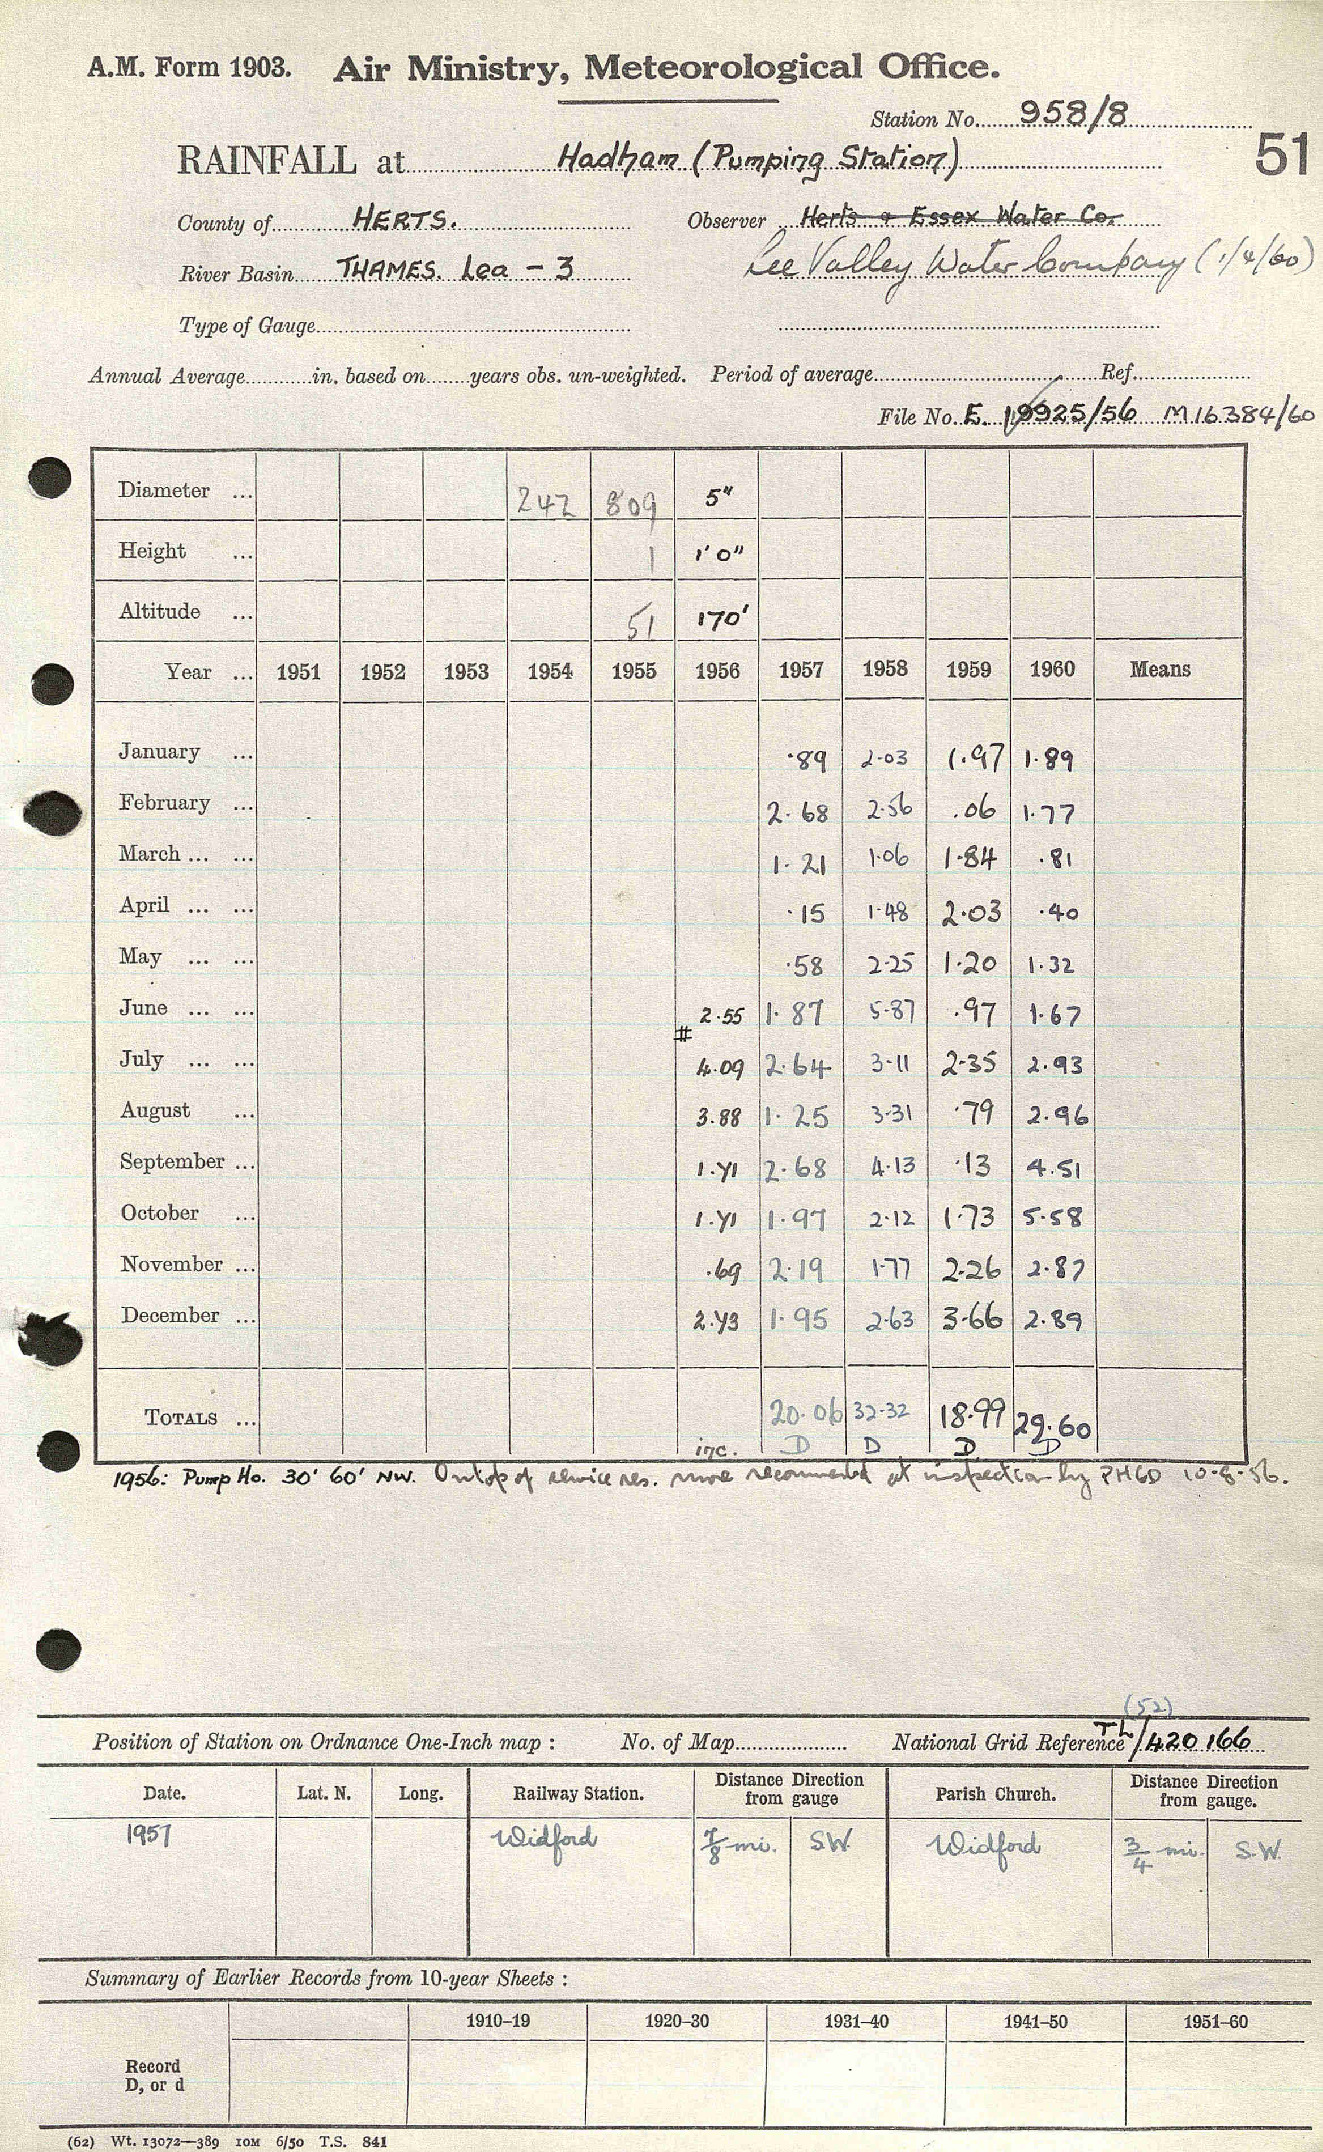 A.M. Form 1903. Air Ministry, Meteorological Office.
Station No. 958/8
RAINFALL at Hadham (Pumping Station) 51
County of HERTS. Observer Herts + Essex Water Co.
River Basin THAMES. Lea - 3 Lee Valley Water Company (1/4/60)
Type of Gauge
Annual Average in. based on years obs. un-weighted. Period of average Ref.
File No. E. 19925/56 M16384/60
Diameter ... 242 809 5"
Height ... 1 1'0"
Altitude ... 51 170'
Year ... 1951 1952 1953 1954 1955 1956 1957 1958 1959 1960 Means
January ... ·89 2·03 1·97 1·89
February ... 2·68 2·56 .06 1·77
March ... ... 1·21 1·06 1·84 ·81
April ... ... ·15 1·48 2·03 ·40
May ... ... ·58 2·25 1·20 1·32
June ... ... 2·55 1·87 5·87 ·97 1·67
#
July ... ... 4·09 2·64 3·11 2·35 2·93
August ... 3·88 1·25 3·31 ·79 2·96
September ... 1·71 2·68 4·13 ·13 4·51
October ... 1·71 1·97 2·12 1·73 5·58
November ... ·69 2·19 1·77 2·26 2·87
December ... 2·73 1·95 2·63 3·66 2·89
TOTALS ... 20·06 32·32 18·99 29·60
inc. D D D D
1956: Pump Ho. 30' 60' NW. On top of service res. more recommended at inspection by 10-8-56.
(52)
Position of Station on Ordnance One-Inch map : No. of Map National Grid Reference TL/420166
Date. Lat. N. Long. Railway Station. Distance Direction from gauge Parish Church. Distance Direction from gauge.
1957 Widford 7/8 mi. S.W. Widford 3/4 mi. S.W.
Summary of Earlier Records from 10-year Sheets :
1910–19 1920–30 1931–40 1941–50 1951–60
Record
D, or d
(62) Wt. 13072—389 10M 6/50 T.S. 841